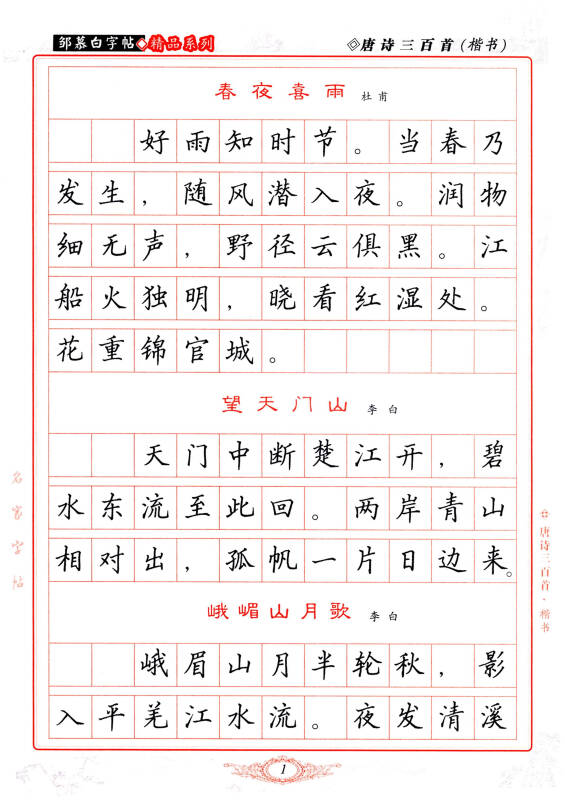 邹慕白字帖 精品系列 唐诗三百首(楷书)
春夜喜雨 杜甫
好雨知时节。当春乃
发生,随风潜入夜。润物
细无声,野径云俱黑。江
船火独明,晓看红湿处。
花重锦官城。
望天门山 李白
天门中断楚江开,碧
水东流至此回。两岸青山
相对出,孤帆一片日边来。
峨嵋山月歌 李白
峨眉山月半轮秋,影
入平羌江水流。夜发清溪
名家字帖
唐诗三百首·楷书
1